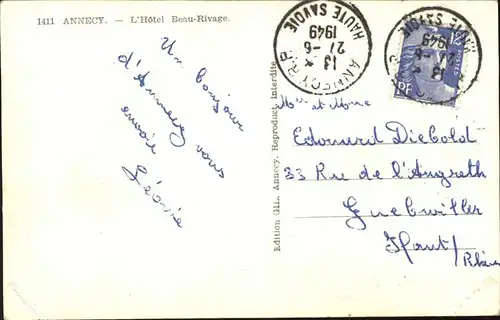 1411 ANNECY. — L'Hôtel Beau-Rivage.
Un bonjour
d'Annecy vous
envoie
Léonie
Edition Gil. Annecy. Reproduct. Interdite
ANNECY R.P.
13 *
27-6
1949
HAUTE SAVOIE
13 *
27-6
1949
HAUTE SAVOIE
12F
POSTES
RF
Mr et Mme
Edouard Diebold
33 Rue de l'Angreth
Guebwiller
Haut/
Rhin